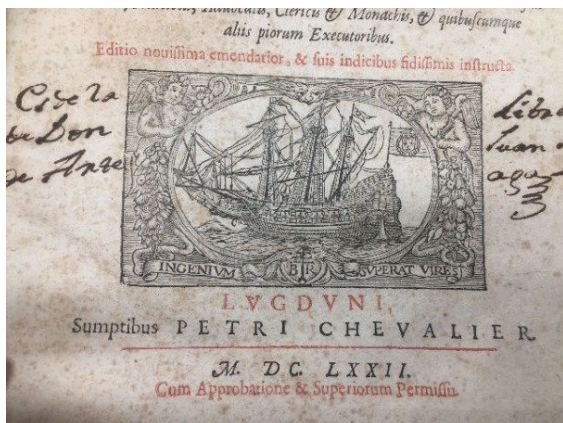 Clericis & Monachis, & quibuscumque
aliis piorum Executoribus.
Editio nouissima emendatior, & suis indicibus fidissimis instructa.
Es de la
Don
Libro
Juan
INGENIVM BR SVPERAT VIRES
LVGDVNI,
Sumptibus PETRI CHEVALIER
M. DC. LXXII.
Cum Approbatione & Superiorum Permissu.